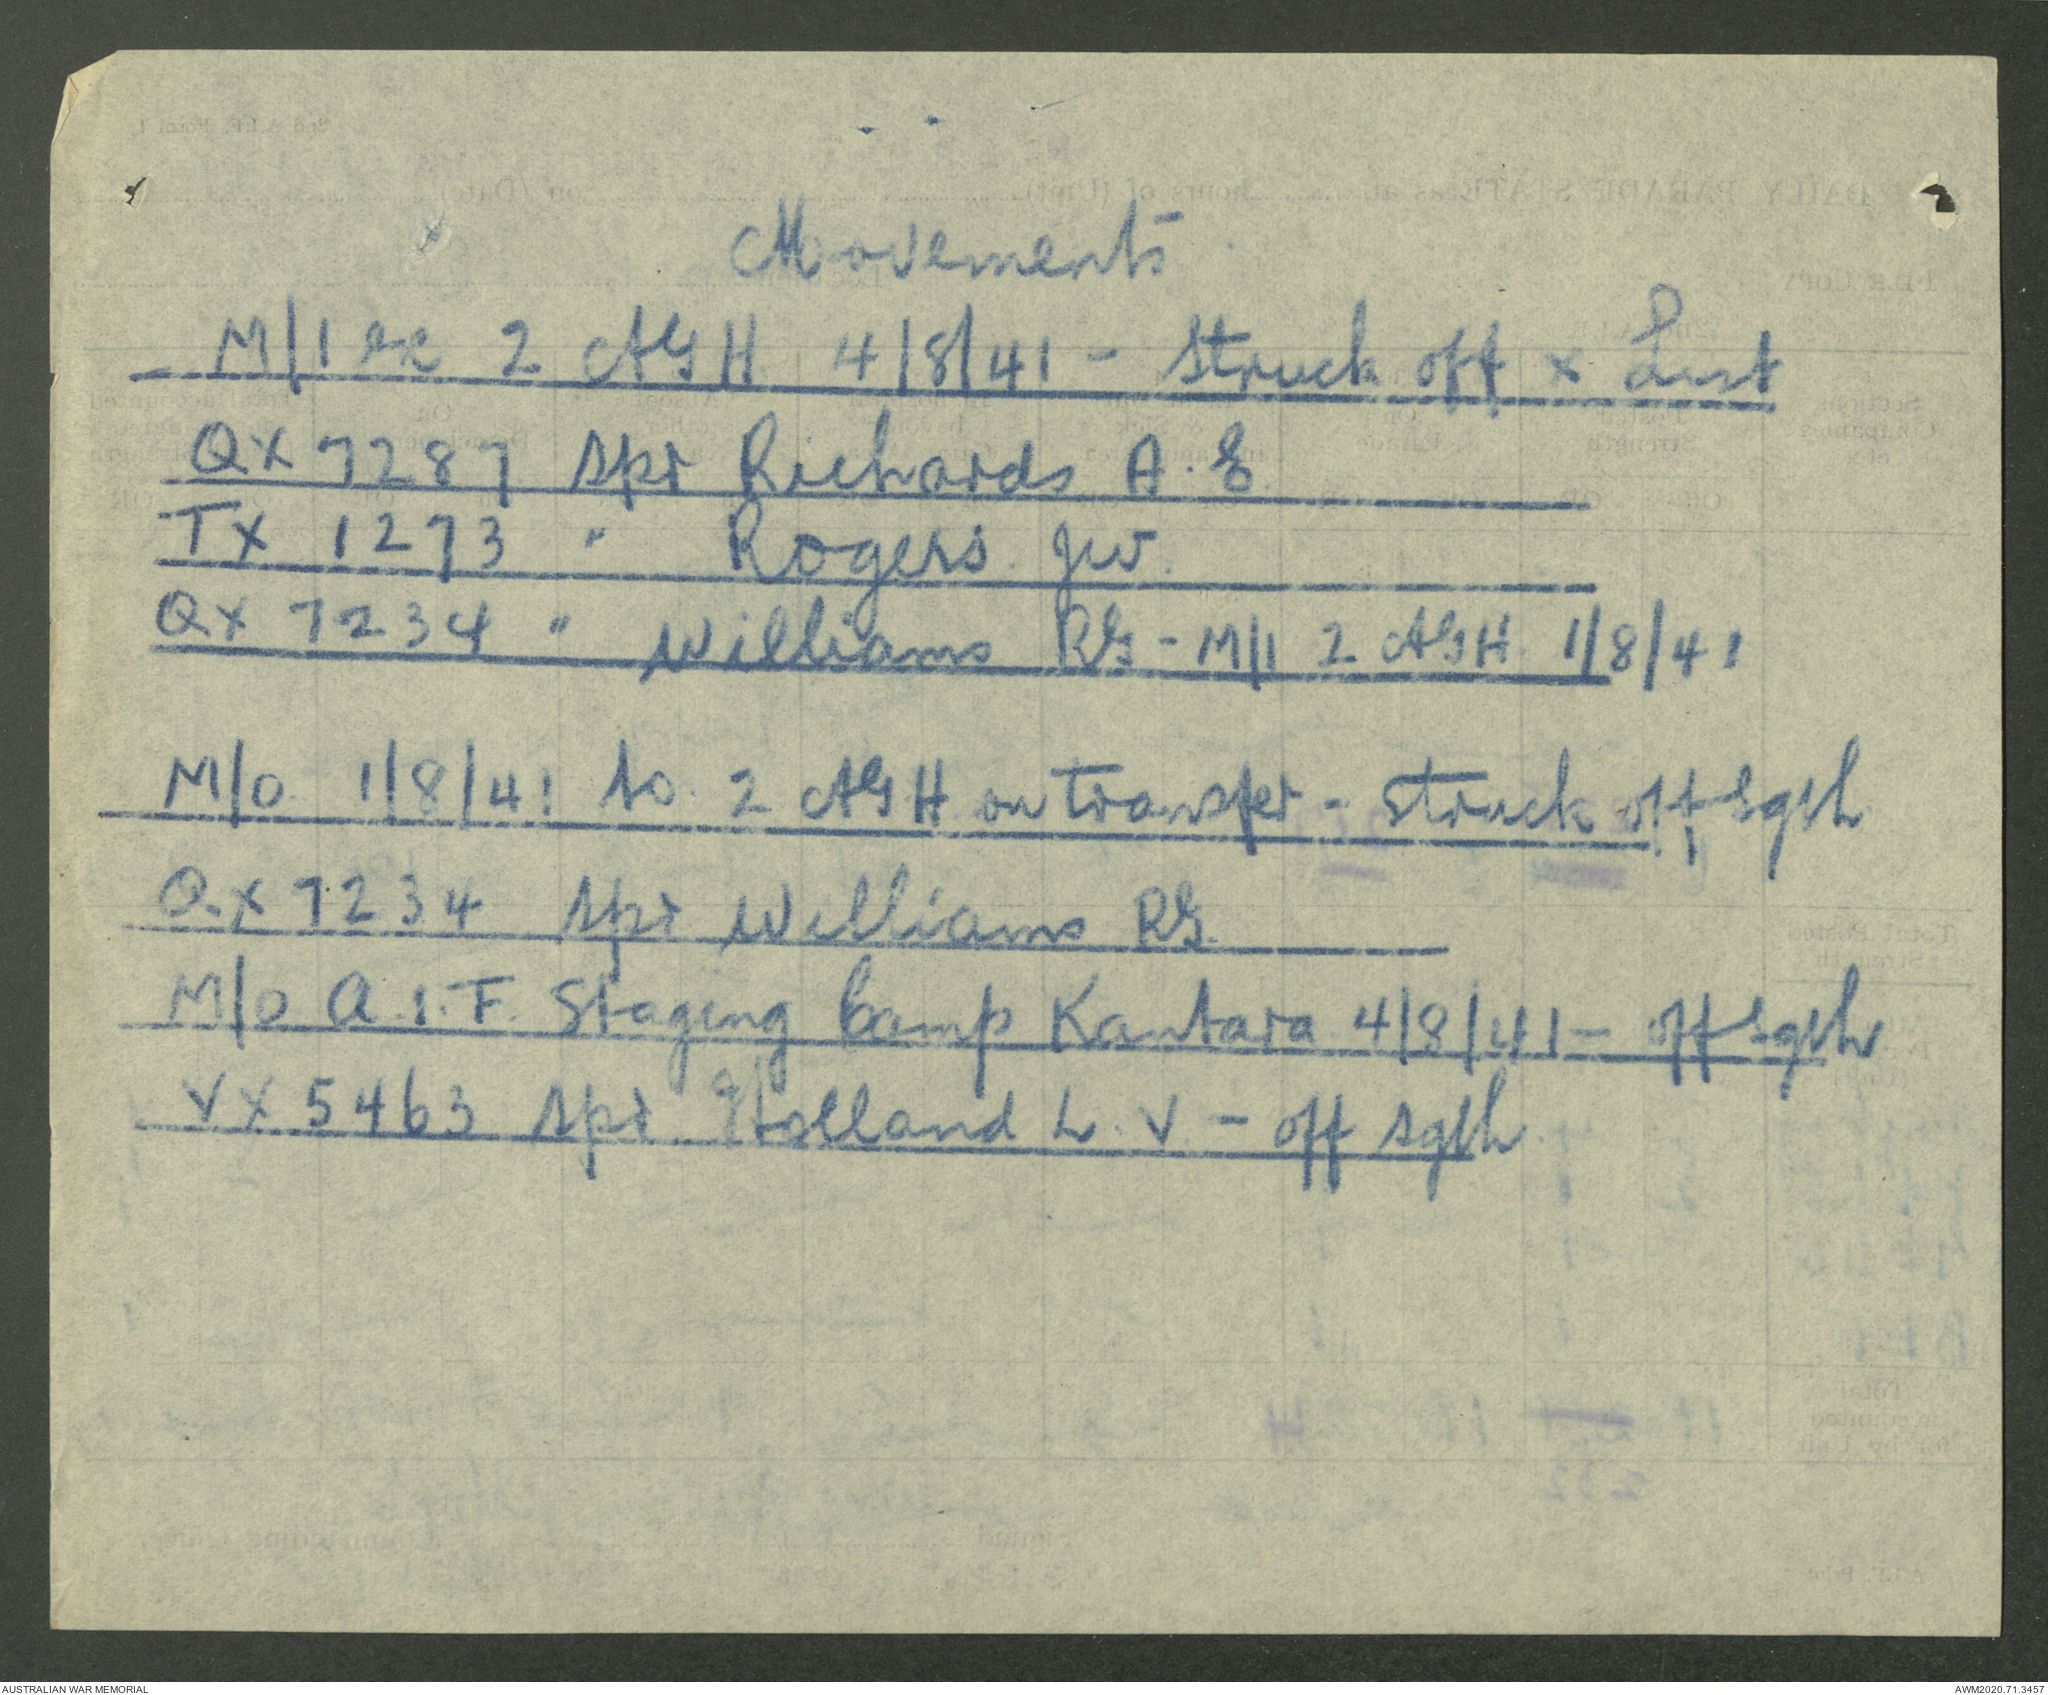 Movements
M/I ex 2 AGH 4/8/41 - struck off x List
QX 7287 Spr Richards A. E
TX 1273 " Rogers JW.
QX 7234 " Williams RG - M/I 2 AGH 1/8/41
M/O 1/8/41 to 2 AGH on transfer - struck off sgth
QX 7234 Spr Williams RG.
M/O A.I.F. Staging Camp Kantara 4/8/41 - off sgth
VX 5463 Spr Holland L. V. - off sgth
AUSTRALIAN WAR MEMORIAL
AWM2020.71.3457